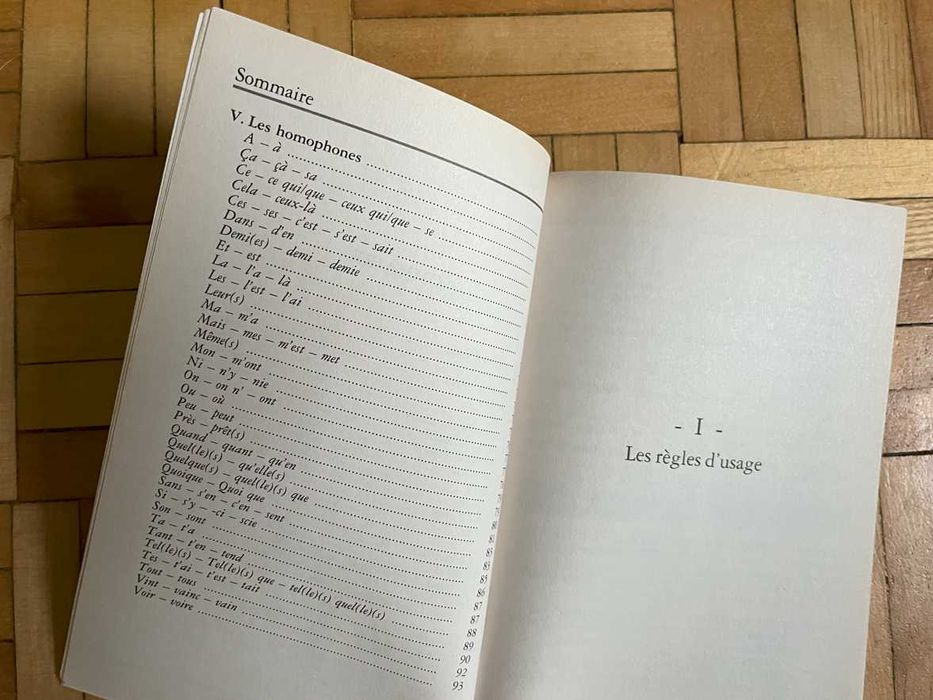 Sommaire
V. Les homophones
A – à
Ça – çà – sa
Ce – ce qui/que – ceux qui/que – se
Cela – ceux-là
Ces – ses – c'est – s'est – sait
Dans – d'en
Demi(es) – demi – demie
Et – est
La – l'a – là
Les – l'est – l'ai
Leur(s)
Ma – m'a
Mais – mes – m'est – met
Même(s)
Mon – m'ont
Ni – n'y – nie
On – on n' – ont
Ou – où
Peu – peut
Près – prêt(s)
Quand – quant – qu'en
Quel(le)(s) – qu'elle(s)
Quelque(s) – quel(le)(s) que
Quoique – Quoi que
Sans – s'en – c'en – sent
Si – s'y – -ci – scie
Son – sont
Ta – t'a
Tant – t'en – tend
Tel(le)(s) – Tel(le)(s) que – tel(le)(s) quel(le)(s)
Tes – t'ai – t'est – tait
Tout – tous
Vint – vainc – vain
Voir – voire
83
85
85
86
87
87
88
89
90
92
93
- I -
Les règles d'usage